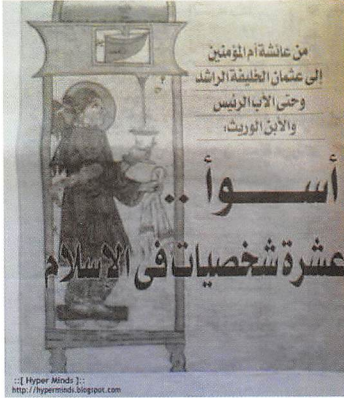 من عائشة أم المؤمنين
إلى عثمان الخليفة الراشد
وحتى الأب الرئيس
والأبن الوريث:
أســـوأ ..
عشرة شخصيات فى الإسلام
::[ Hyper Minds ]::
http://hyperminds.blogspot.com